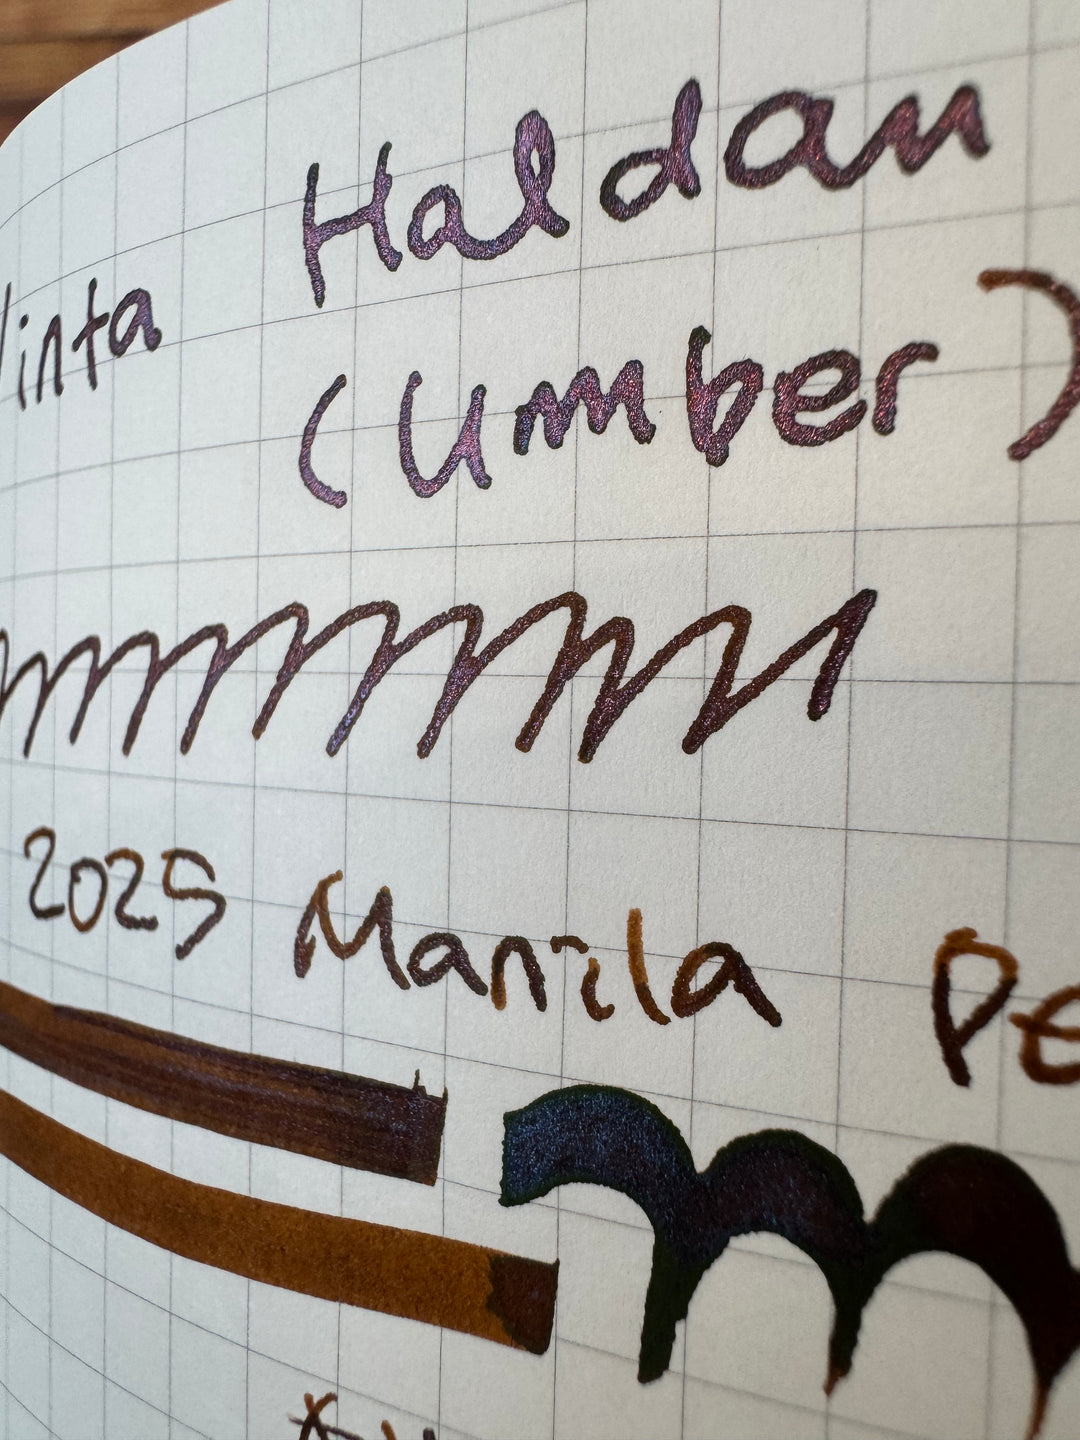 Vinta Haldan
(Umber)
2025 Manila Pe